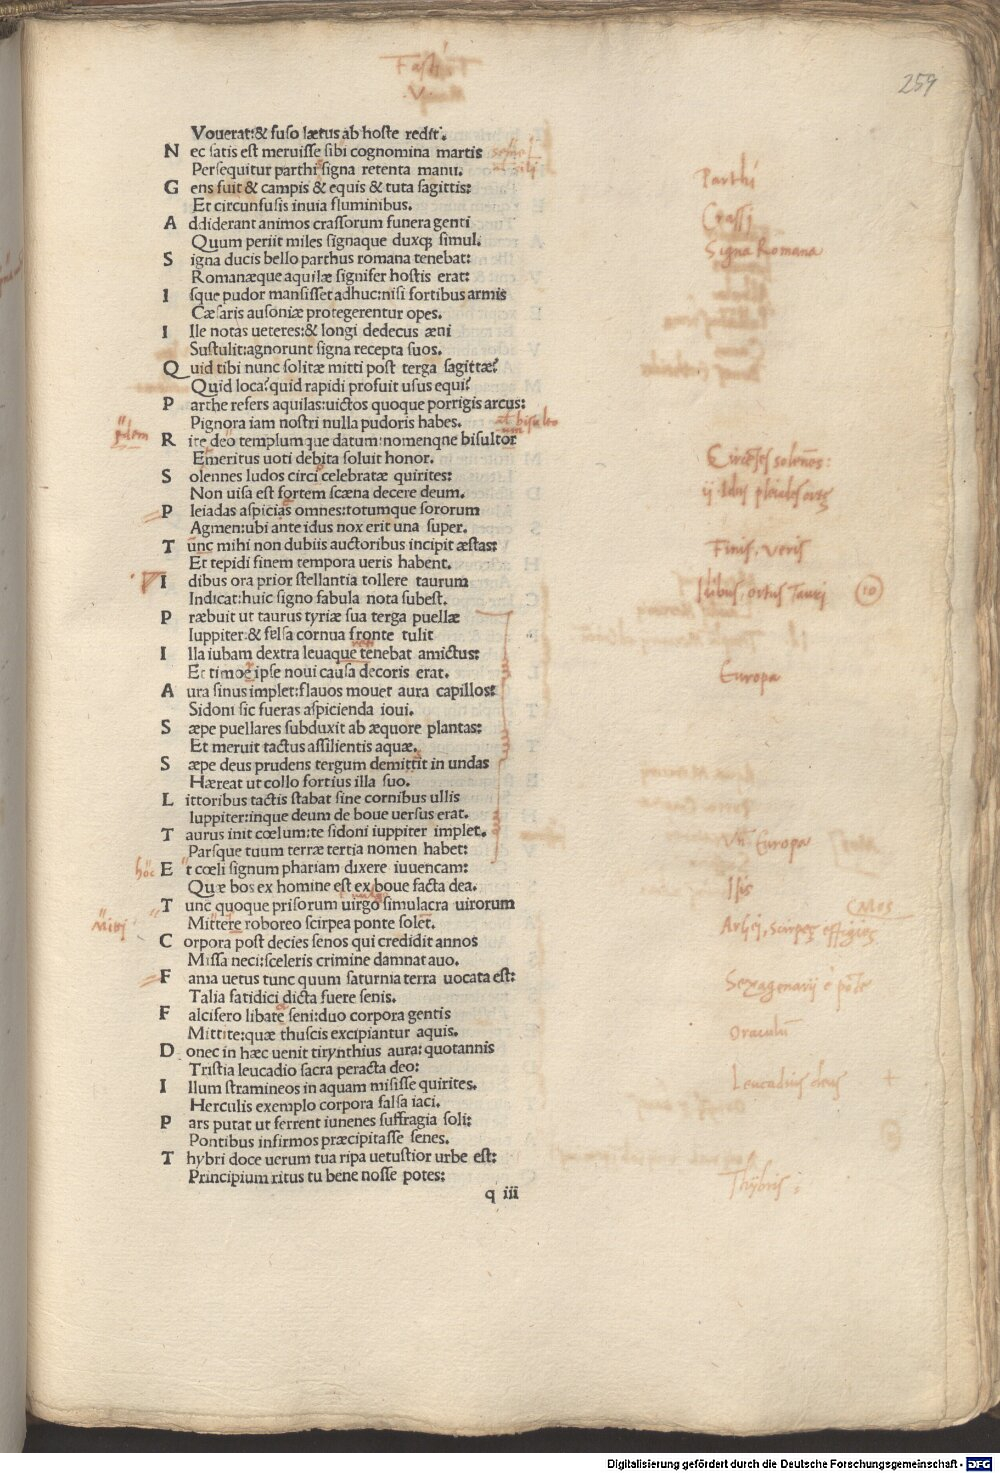 Fasti
V
259
Vouerat:& fuso lætus ab hoste redit.
N ec satis est meruisse sibi cognomina martis
Persequitur parthi signa retenta manu.
G ens fuit & campis & equis & tuta sagittis:
Et circunfusis inuia fluminibus.
A ddiderant animos crassorum funera genti
Quum periit miles signaque duxqꝫ simul.
S igna ducis bello parthus romana tenebat:
Romanæque aquilæ signifer hostis erat:
I sque pudor mansisset adhuc:nisi fortibus armis
Cæsaris ausoniæ protegerentur opes.
I lle notas ueteres:& longi dedecus æui
Sustulit:agnorunt signa recepta suos.
Q uid tibi nunc solitæ mitti post terga sagittæ?
Quid loca?quid rapidi profuit usus equi?
P arthe refers aquilas:uictos quoque porrigis arcus:
Pignora iam nostri nulla pudoris habes.
R ite deo templumque datum:nomenqne bisultor
Emeritus uoti debita soluit honor.
S olennes ludos circi celebratæ quirites:
Non uisa est fortem scæna decere deum.
P leiadas aspicias omnes:totumque sororum
Agmen:ubi ante idus nox erit una super.
T unc mihi non dubiis auctoribus incipit æstas:
Et tepidi finem tempora ueris habent.
I dibus ora prior stellantia tollere taurum
Indicat:huic signo fabula nota subest.
P ræbuit ut taurus tyriæ sua terga puellæ
Iuppiter:& felsa cornua fronte tulit
I lla iubam dextra leuaque tenebat amictus:
Et timor ipse noui causa decoris erat.
A ura sinus implet:flauos mouet aura capillos:
Sidoni sic fueras aspicienda ioui.
S æpe puellares subduxit ab æquore plantas:
Et meruit tactus assilientis aquæ.
S æpe deus prudens tergum demittit in undas
Hæreat ut collo fortius illa suo.
L ittoribus tactis stabat sine cornibus ullis
Iuppiter:inque deum de boue uersus erat.
T aurus init cœlum:te sidoni iuppiter implet.
Parsque tuum terræ tertia nomen habet:
E t cœli signum phariam dixere iuuencam:
Quæ bos ex homine est ex boue facta dea.
T unc quoque prisorum uirgo simulacra uirorum
Mittere roboreo scirpea ponte solet.
C orpora post decies senos qui credidit annos
Missa neci:sceleris crimine damnat auo.
F ama uetus tunc quum saturnia terra uocata est:
Talia fatidici dicta fuere senis.
F alcifero libate seni:duo corpora gentis
Mittite:quæ thuscis excipiantur aquis.
D onec in hæc uenit tirynthius aura: quotannis
Tristia leucadio sacra peracta deo:
I llum stramineos in aquam misisse quirites.
Herculis exemplo corpora falsa iaci.
P ars putat ut ferrent iunenes suffragia soli:
Pontibus infirmos præcipitasse senes.
T hybri doce uerum tua ripa uetustior urbe est:
Principium ritus tu bene nosse potes:
q iii
Parthi
Crassi
Signa Romana
Finis, veris
Idibus, ortus Tauri 10
Europa
Europa
Isis
Oraculū
Leucadius deus
Thybris